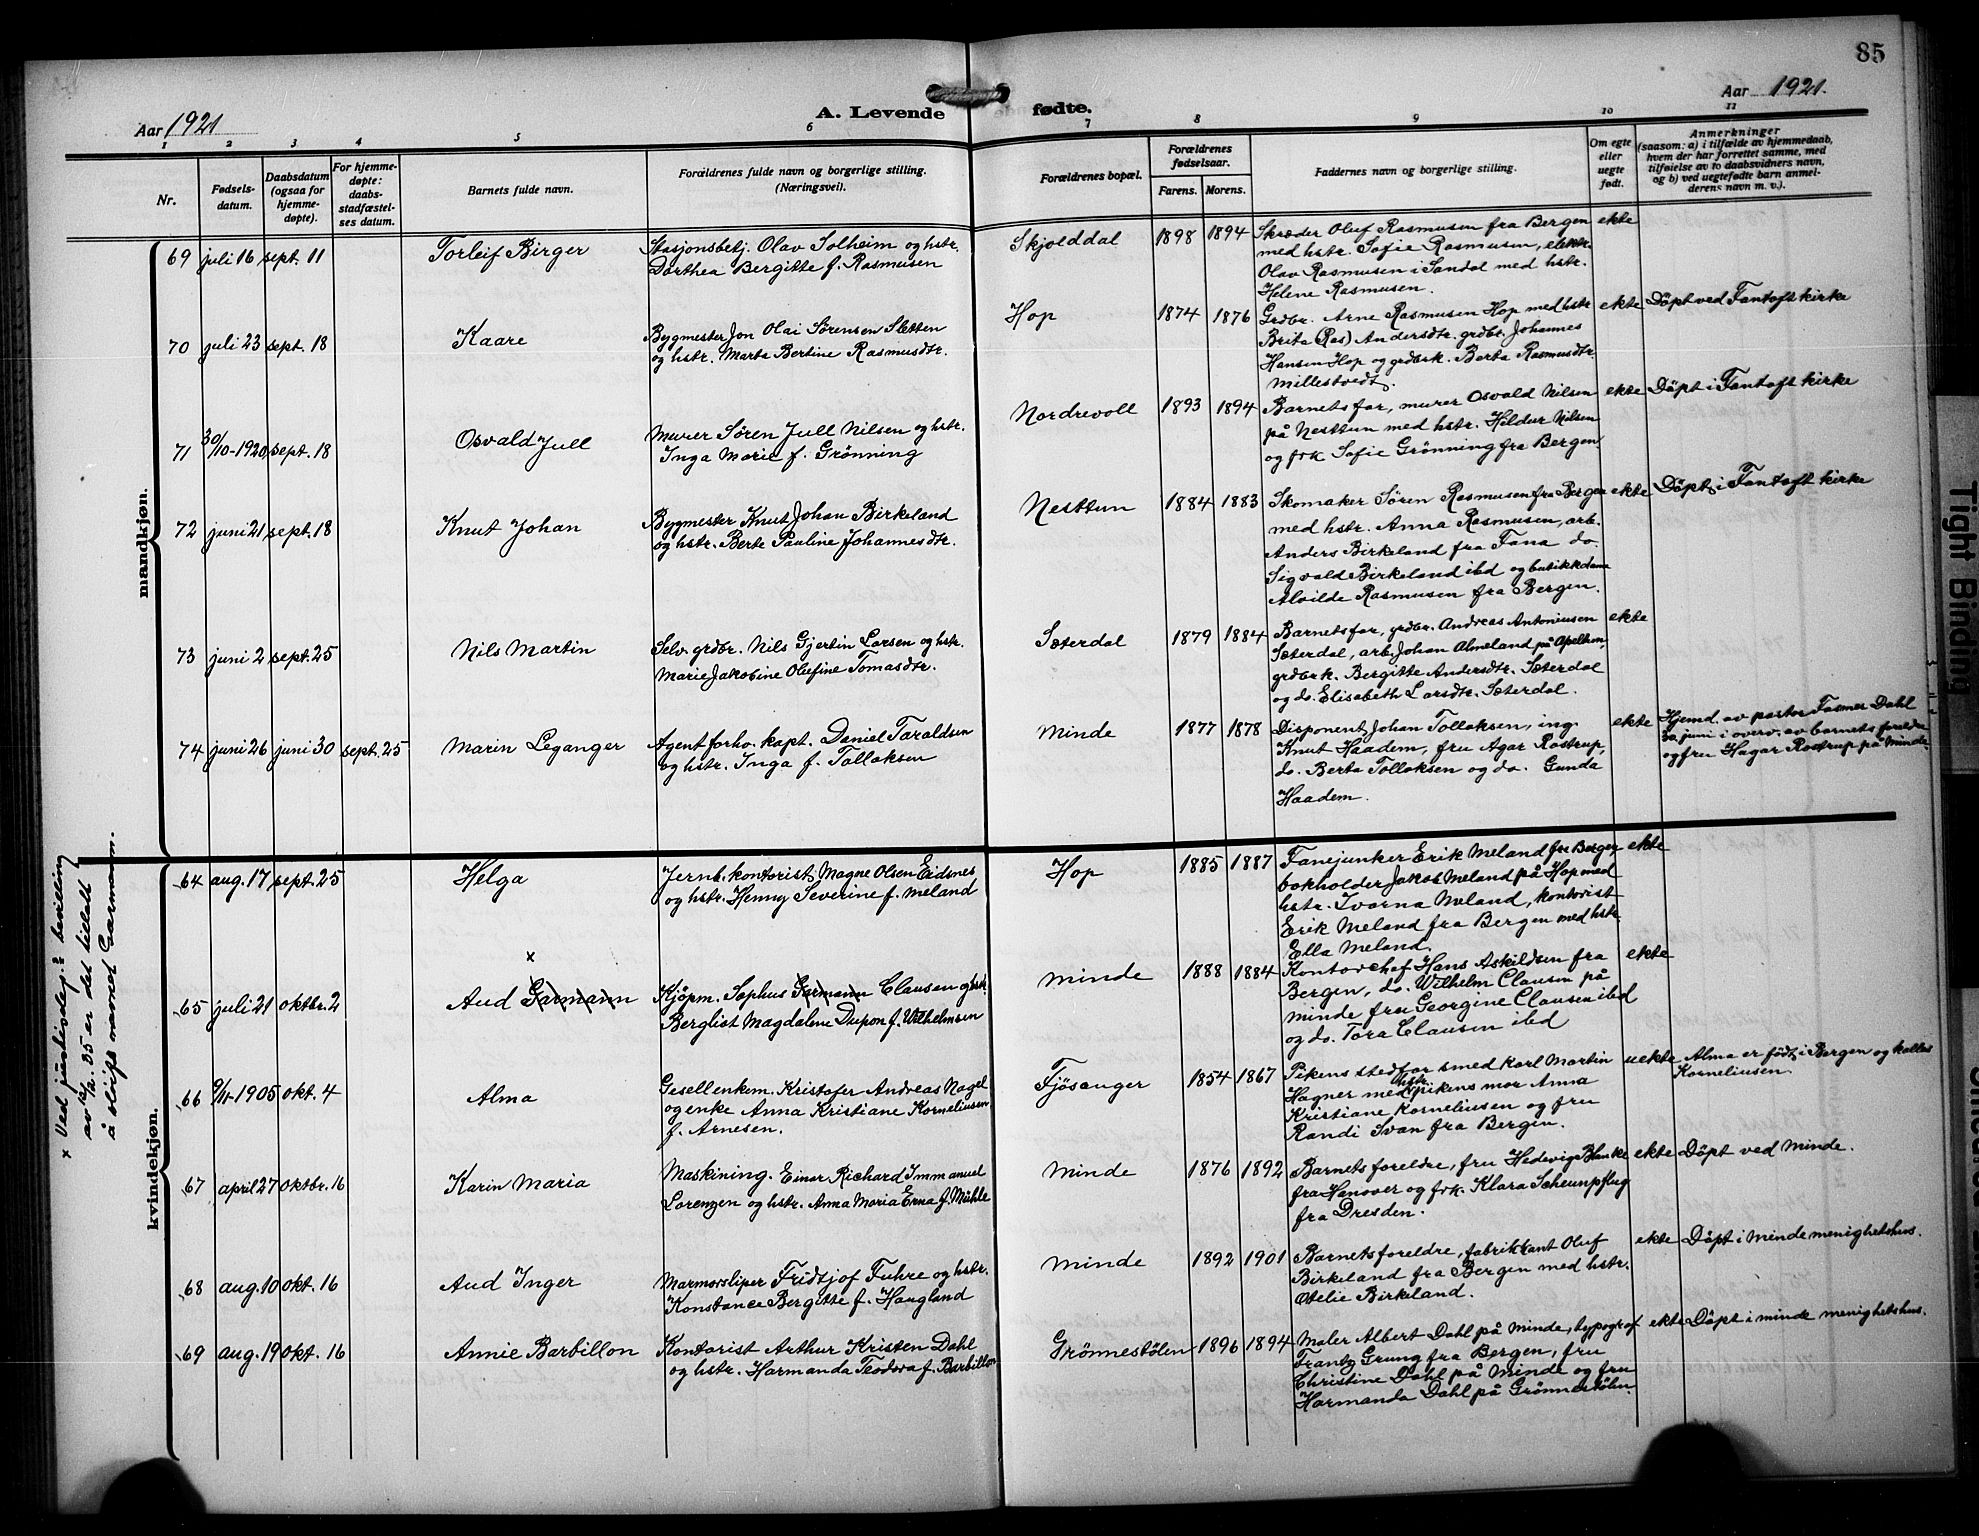 85
Aar 1921
A. Levende fødte.
Aar 1921.
1 2 3 4 5 6 7 8 9 10 11
Nr.
Fødsels-
datum.
Daabsdatum
(ogsaa for
hjemme-
døpte).
For hjemme-
døpte:
daabs-
stadfæstel-
ses datum.
Barnets fulde navn.
Forældrenes fulde navn og borgerlige stilling.
(Næringsvei).
Forældrenes bopæl.
Forældrenes
fødselsaar.
Farens. Morens.
Faddernes navn og borgerlige stilling.
Om egte
eller
uegte
født.
Anmerkninger
(saasom: a) i tilfælde av hjemmedaab,
hvem der har forrettet samme, med
tilføielse av to daabsvidners navn,
og b) ved uegtefødte barn anmel-
derens navn m. v.).
mandkjøn.
69 juli 16 sept. 11 Torleif Birger
Stasjonsbetj. Olav Solheim og hstr.
Dorthea Bergitte f. Rasmusen
Skjolddal 1898 1894
Skræder Oluf Rasmusen fra Bergen
med hstr. Sofie Rasmusen, elektr.
Olav Rasmusen i Sandal med hstr.
Helene Rasmusen.
ekte
70 juli 23 sept. 18 Kaare
Bygmester Jon Olai Sørensen Sletten
og hstr. Marta Bertine Rasmusdtr.
Hop 1874 1876
Grdbr. Arne Rasmusen Hop med hstr
Brita (Ras) Andersdtr. grdbr. Johannes
Hansen Hop og grdbrk. Berta Rasmusdtr.
Millestvedt.
ekte Döpt ved Fantoft kirke
71 30/10-1920 sept. 18 Osvald Jull
Murer Søren Jull Nilsen og hstr.
Inga Marie f. Grønning
Nordrevoll 1893 1894
Barnets far, murer Osvald Nilsen
på Nesttun med hstr. Hildur Nilsen
og frk Sofie Grønning fra Bergen.
ekte Döpt i Fantoft kirke
72 juni 21 sept. 18 Knut Johan
Bygmester Knut Johan Birkeland
og hstr. Berte Pauline Johannesdtr.
Nesttun 1884 1883
Skomaker Søren Rasmusen fra Bergen
med hstr. Anna Rasmusen, arb.
Anders Birkeland fra Fana do.
Sigvald Birkeland ibd og butikkdame
Alvilde Rasmusen fra Bergen.
ekte Döpt i Fantoft kirke
73 juni 2 sept. 25 Nils Martin
Selv. grdbr. Nils Gjertin Larsen og hstr.
Marie Jakobine Olufine Tomasdtr.
Sæterdal 1879 1884
Barnets far, grdbr. Andreas Antoniusen
Sæterdal, arb. Johan Almeland på Apeltun,
grdbrk. Bergitte Andersdtr. Sæterdal
og do. Elisabeth Larsdtr. Sæterdal.
ekte
74 juni 26 juni 30 sept. 25 Marin Leganger
Agent forho. kapt. Daniel Taraldsen
og hstr. Inga f. Tollaksen
Minde 1877 1878
Disponent Johan Tollaksen, ing.
Knut Haadem, fru Agar Rostrup,
do. Berta Tollaksen og do. Gunda
Haadem.
ekte Hjemd. av pastor Fasmer Dahl
30. juni i overv. av barnets foreldre
og fru Hagar Rostrup på Minde.
kvindekjøn.
64 aug. 17 sept. 25 Helga
Jernb. kontorist Magne Olsen Eidsnes
og hstr. Henny Severine f. Meland
Hop 1885 1887
Fanejunker Erik Meland fra Bergen,
bokholder Jakob Meland på Hop med
hstr. Ivarna Meland, kontorist
Erik Meland fra Bergen med hstr.
Ella Meland.
ekte
x
65 juli 21 oktbr. 2 Aud Garmann
Kjöpm. Sophus Garmann Clausen og hstr.
Bergliot Magdalene Dupon f. Wilhelmsen
Minde 1888 1884
Kontorchef Hans Askildsen fra
Bergen, do. Wilhelm Clausen på
Minde fru Georgine Clausen ibd
og do. Tora Clausen ibd
ekte
66 9/11-1905 okt. 4 Alma
Gesellenkem. Kristofer Andreas Nagel
og enke Anna Kristiane Korneliusen
f. Arnesen.
Fjösanger 1854 1867
Pikens stedfar smed Karl Martin
Hagner med hstr. pikens mor Anna
Kristiane Korneliusen og fru
Randi Svan fra Bergen.
uekte Alma er født i Bergen og kalles
Korneliusen
67 april 27 oktbr. 16 Karin Maria
Maskining. Einar Richard Immanuel
Lorenzen og hstr. Anna Maria Erna f. Mühle
Minde 1876 1892
Barnets foreldre, fru Hedevig Blanke
fra Hanover og frk. Klara Scheunpflug
fra Dresden.
ekte Döpt ved Minde.
68 aug. 10 okt. 16 Aud Inger
Marmorsliper Fridtjof Fuhre og hstr.
Konstance Bergitte f. Haugland
Minde 1892 1901
Barnets foreldre, fabrikkant Oluf
Birkeland fra Bergen med hstr.
Otelie Birkeland.
ekte Döpt i Minde menighetshus.
69 aug. 19 okt. 16 Annie Barbillon
Kontorist Arthur Kristen Dahl
og hstr. Harmanda Teodora f. Barbillon
Grönnestölen 1896 1894
Maler Albert Dahl på Minde, typograf
Frantz Grung fra Bergen, fru
Christine Dahl på Minde og fru
Harmanda Dahl på Grönnestölen.
ekte Döpt i Minde menighetshus.
x Ved justisdep.s bevilling
av 12/2.35 er det tillatt
å sløife navnet Garmann.
Tight Binding